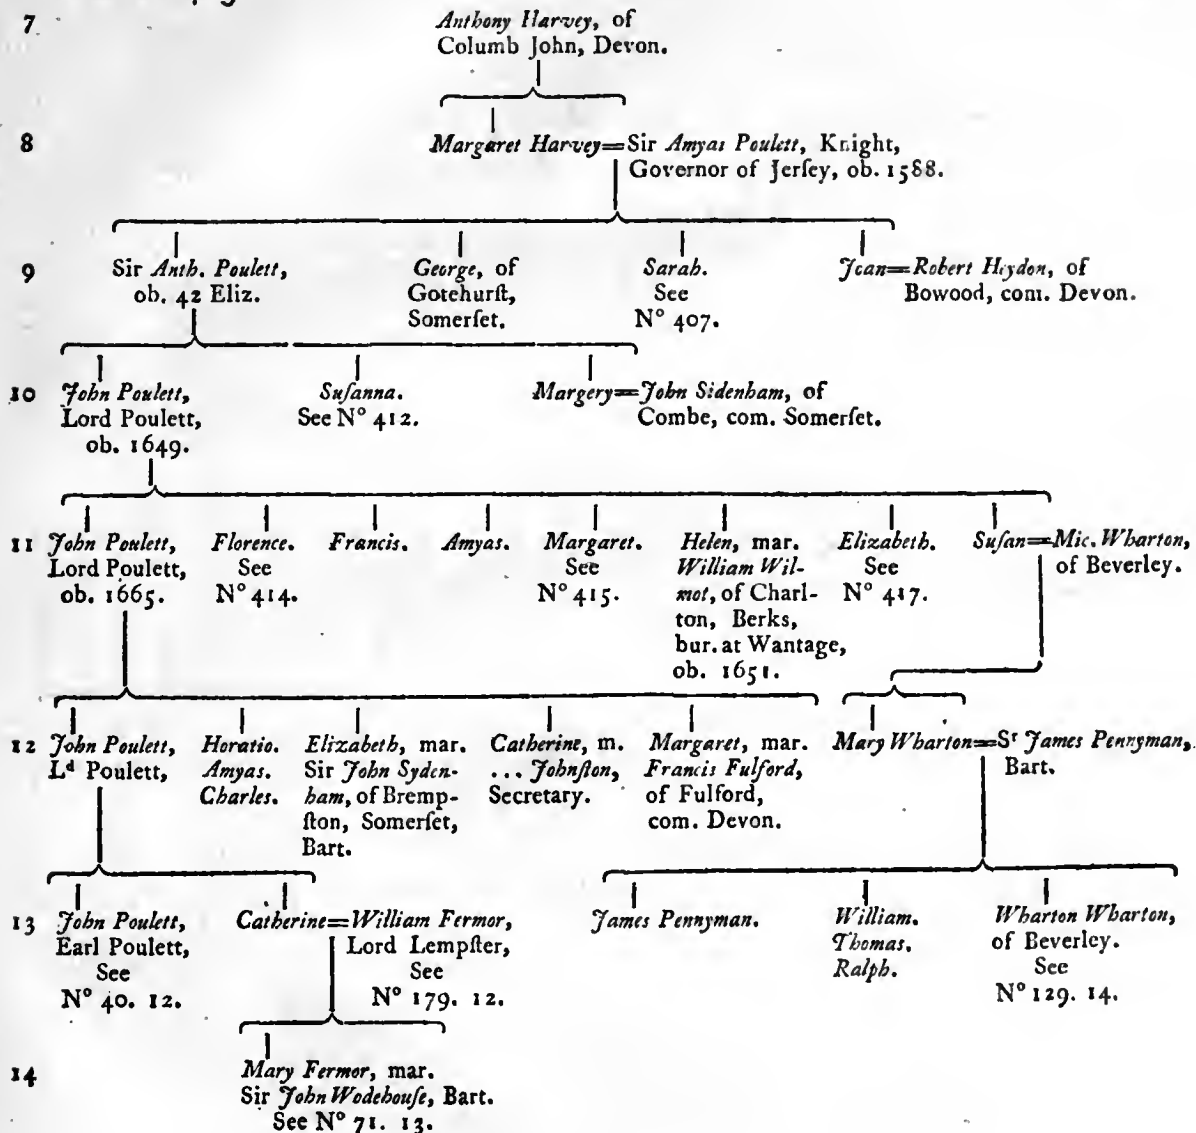 7
Anthony Harvey, of
Columb John, Devon.
8
Margaret Harvey=Sir Amyas Poulett, Knight,
Governor of Jerſey, ob. 1588.
9
Sir Anth. Poulett,
ob. 42 Eliz.
George, of
Gotehurſt,
Somerſet.
Sarah.
See
N° 407.
Jean=Robert Heydon, of
Bowood, com. Devon.
10
John Poulett,
Lord Poulett,
ob. 1649.
Suſanna.
See N° 412.
Margery=John Sidenham, of
Combe, com. Somerſet.
11
John Poulett,
Lord Poulett,
ob. 1665.
Florence.
See
N° 414.
Francis.
Amyas.
Margaret.
See
N° 415.
Helen, mar.
William Wil-
mot, of Charl-
ton, Berks,
bur. at Wantage,
ob. 1651.
Elizabeth.
See
N° 417.
Suſan=Mic. Wharton,
of Beverley.
12
John Poulett,
Ld Poulett,
Horatio.
Amyas.
Charles.
Elizabeth, mar.
Sir John Syden-
ham, of Bremp-
ſton, Somerſet,
Bart.
Catherine, m.
... Johnſton,
Secretary.
Margaret, mar.
Francis Fulford,
of Fulford,
com. Devon.
Mary Wharton=Sr James Pennyman,
Bart.
13
John Poulett,
Earl Poulett,
See
N° 40. 12.
Catherine=William Fermor,
Lord Lempſter,
See
N° 179. 12.
James Pennyman.
William.
Thomas.
Ralph.
Wharton Wharton,
of Beverley.
See
N° 129. 14.
14
Mary Fermor, mar.
Sir John Wodehouſe, Bart.
See N° 71. 13.